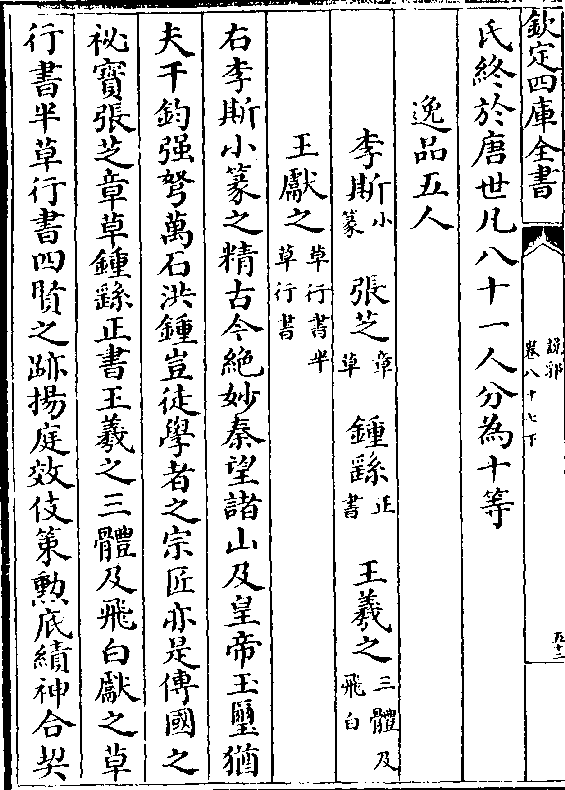 欽定四庫全書
說郛
卷八十七下
九十二
氏終於唐世凡八十一人分為十等
逸品五人
李斯小篆 張芝章草 鍾繇正書 王羲之三體及飛白
王獻之草行書半草行書
右李斯小篆之精古今絶妙秦望諸山及皇帝玉璽猶
夫千鈞强弩萬石洪鍾豈徒學者之宗匠亦是傳國之
祕寳張芝章草鍾繇正書王羲之三體及飛白獻之草
行書半草行書四賢之跡揚庭效伎策勲底績神合契